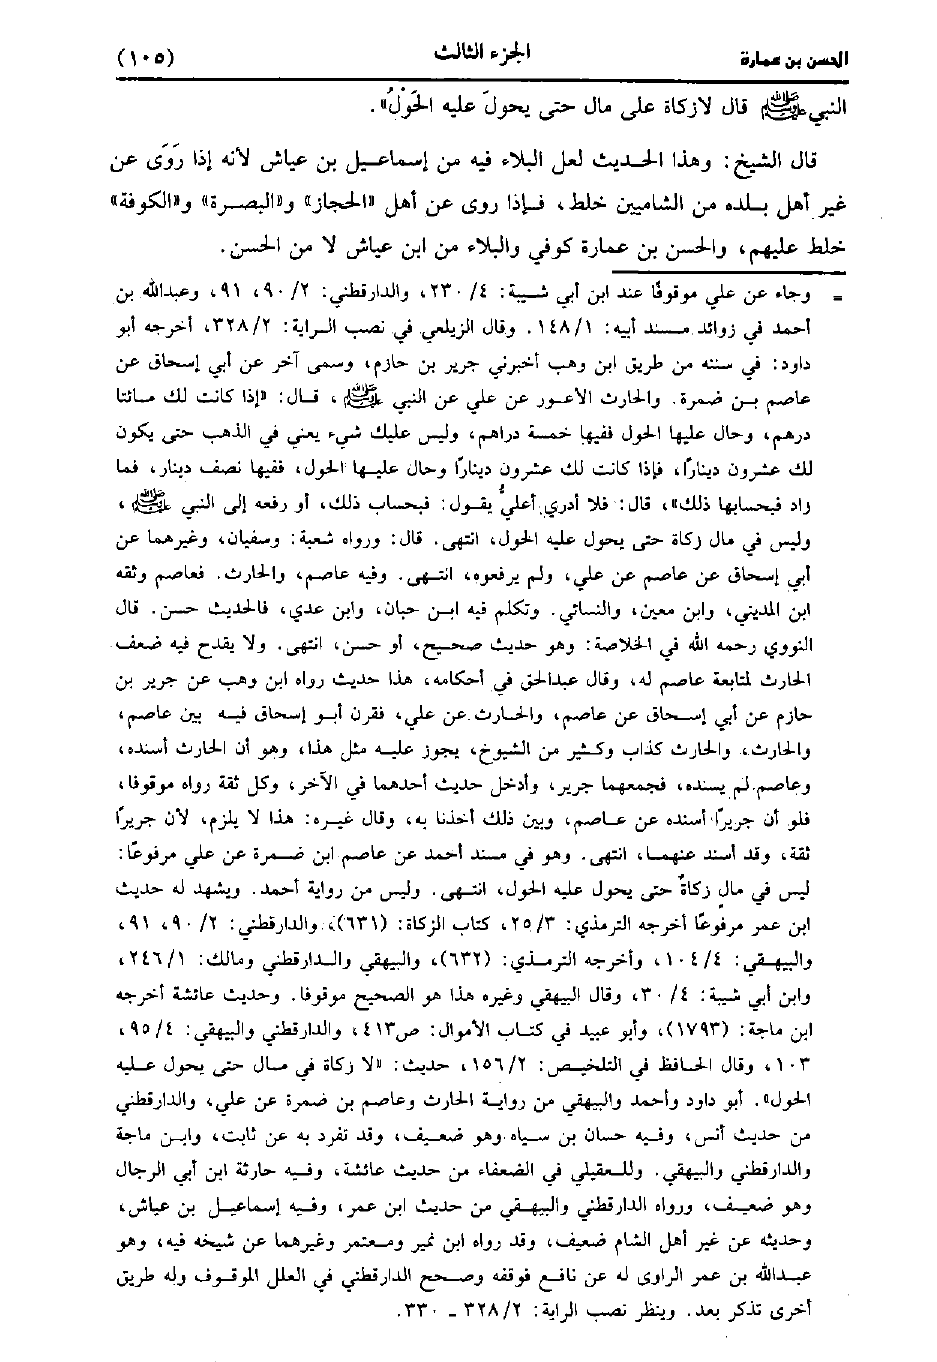 الحسن بن عمارة الجزء الثالث (١٠٥)
النبي ﷺ قال لازكاة على مال حتى يحولَ عليه الحَوْلُ».
قال الشيخ: وهذا الحديث لعل البلاء فيه من إسماعيل بن عياش لأنه إذا رَوَى عن
غير أهل بلده من الشاميين خلط، فإذا روى عن أهل «الحجاز» و«البصرة» و«الكوفة»
خلط عليهم، والحسن بن عمارة كوفي والبلاء من ابن عياش لا من الحسن.
= وجاء عن علي موقوفًا عند ابن أبي شيبة: ٢٣٠/٤، والدارقطني: ٩٠/٢، ٩١، وعبدالله بن
أحمد في زوائد مسند أبيه: ١٤٨/١. وقال الزيلعي في نصب الراية: ٣٢٨/٢، أخرجه أبو
داود: في سننه من طريق ابن وهب أخبرني جرير بن حازم، وسمى آخر عن أبي إسحاق عن
عاصم بن ضمرة. والحارث الأعور عن علي عن النبي ﷺ، قال: «إذا كانت لك مائتا
درهم، وحال عليها الحول ففيها خمسة دراهم، وليس عليك شيء يعني في الذهب حتى يكون
لك عشرون دينارًا، فإذا كانت لك عشرون دينارًا وحال عليها الحول، ففيها نصف دينار، فما
زاد فبحسابها ذلك»، قال: فلا أدري أعليٌّ يقول: فبحساب ذلك، أو رفعه إلى النبي ﷺ،
وليس في مال زكاة حتى يحول عليه الحول، انتهى. قال: ورواه شعبة: وسفيان، وغيرهما عن
أبي إسحاق عن عاصم عن علي، ولم يرفعوه، انتهى. وفيه عاصم، والحارث. فعاصم وثقه
ابن المديني، وابن معين، والنسائي. وتكلم فيه ابن حبان، وابن عدي، فالحديث حسن. قال
النووي رحمه الله في الخلاصة: وهو حديث صحيح، أو حسن، انتهى. ولا يقدح فيه ضعف
الحارث لمتابعة عاصم له، وقال عبدالحق في أحكامه، هذا حديث رواه ابن وهب عن جرير بن
حازم عن أبي إسحاق عن عاصم، والحارث عن علي، فقرن أبو إسحاق فيه بين عاصم،
والحارث، والحارث كذاب وكثير من الشيوخ، يجوز عليه مثل هذا، وهو أن الحارث أسنده،
وعاصم لم يسنده، فجمعهما جرير، وأدخل حديث أحدهما في الآخر، وكل ثقة رواه موقوفا،
فلو أن جريرًا أسنده عن عاصم، وبين ذلك أخذنا به، وقال غيره: هذا لا يلزم، لأن جريرًا
ثقة، وقد أسند عنهما، انتهى. وهو في مسند أحمد عن عاصم ابن ضمرة عن علي مرفوعًا:
ليس في مالٍ زكاةٌ حتى يحول عليه الحول، انتهى. وليس من رواية أحمد. ويشهد له حديث
ابن عمر مرفوعًا أخرجه الترمذي: ٢٥/٣، كتاب الزكاة: (٦٣١)، والدارقطني: ٩٠/٢، ٩١،
والبيهقي: ١٠٤/٤، وأخرجه الترمذي: (٦٣٢)، والبيهقي والدارقطني ومالك: ٢٤٦/١،
وابن أبي شيبة: ٣٠/٤، وقال البيهقي وغيره هذا هو الصحيح موقوفا. وحديث عائشة أخرجه
ابن ماجة: (١٧٩٣)، وأبو عبيد في كتاب الأموال: ص٤١٣، والدارقطني والبيهقي: ٩٥/٤،
١٠٣، وقال الحافظ في التلخيص: ١٥٦/٢، حديث: «لا زكاة في مال حتى يحول عليه
الحول». أبو داود وأحمد والبيهقي من رواية الحارث وعاصم بن ضمرة عن علي، والدارقطني
من حديث أنس، وفيه حسان بن سياه وهو ضعيف، وقد تفرد به عن ثابت، وابن ماجة
والدارقطني والبيهقي. وللعقيلي في الضعفاء من حديث عائشة، وفيه حارثة ابن أبي الرجال
وهو ضعيف، ورواه الدارقطني والبيهقي من حديث ابن عمر، وفيه إسماعيل بن عياش،
وحديثه عن غير أهل الشام ضعيف، وقد رواه ابن نمير ومعتمر وغيرهما عن شيخه فيه، وهو
عبدالله بن عمر الراوى له عن نافع فوقفه وصحح الدارقطني في العلل الموقوف وله طريق
أخرى تذكر بعد. وينظر نصب الراية: ٣٢٨/٢ ـ ٣٣٠.